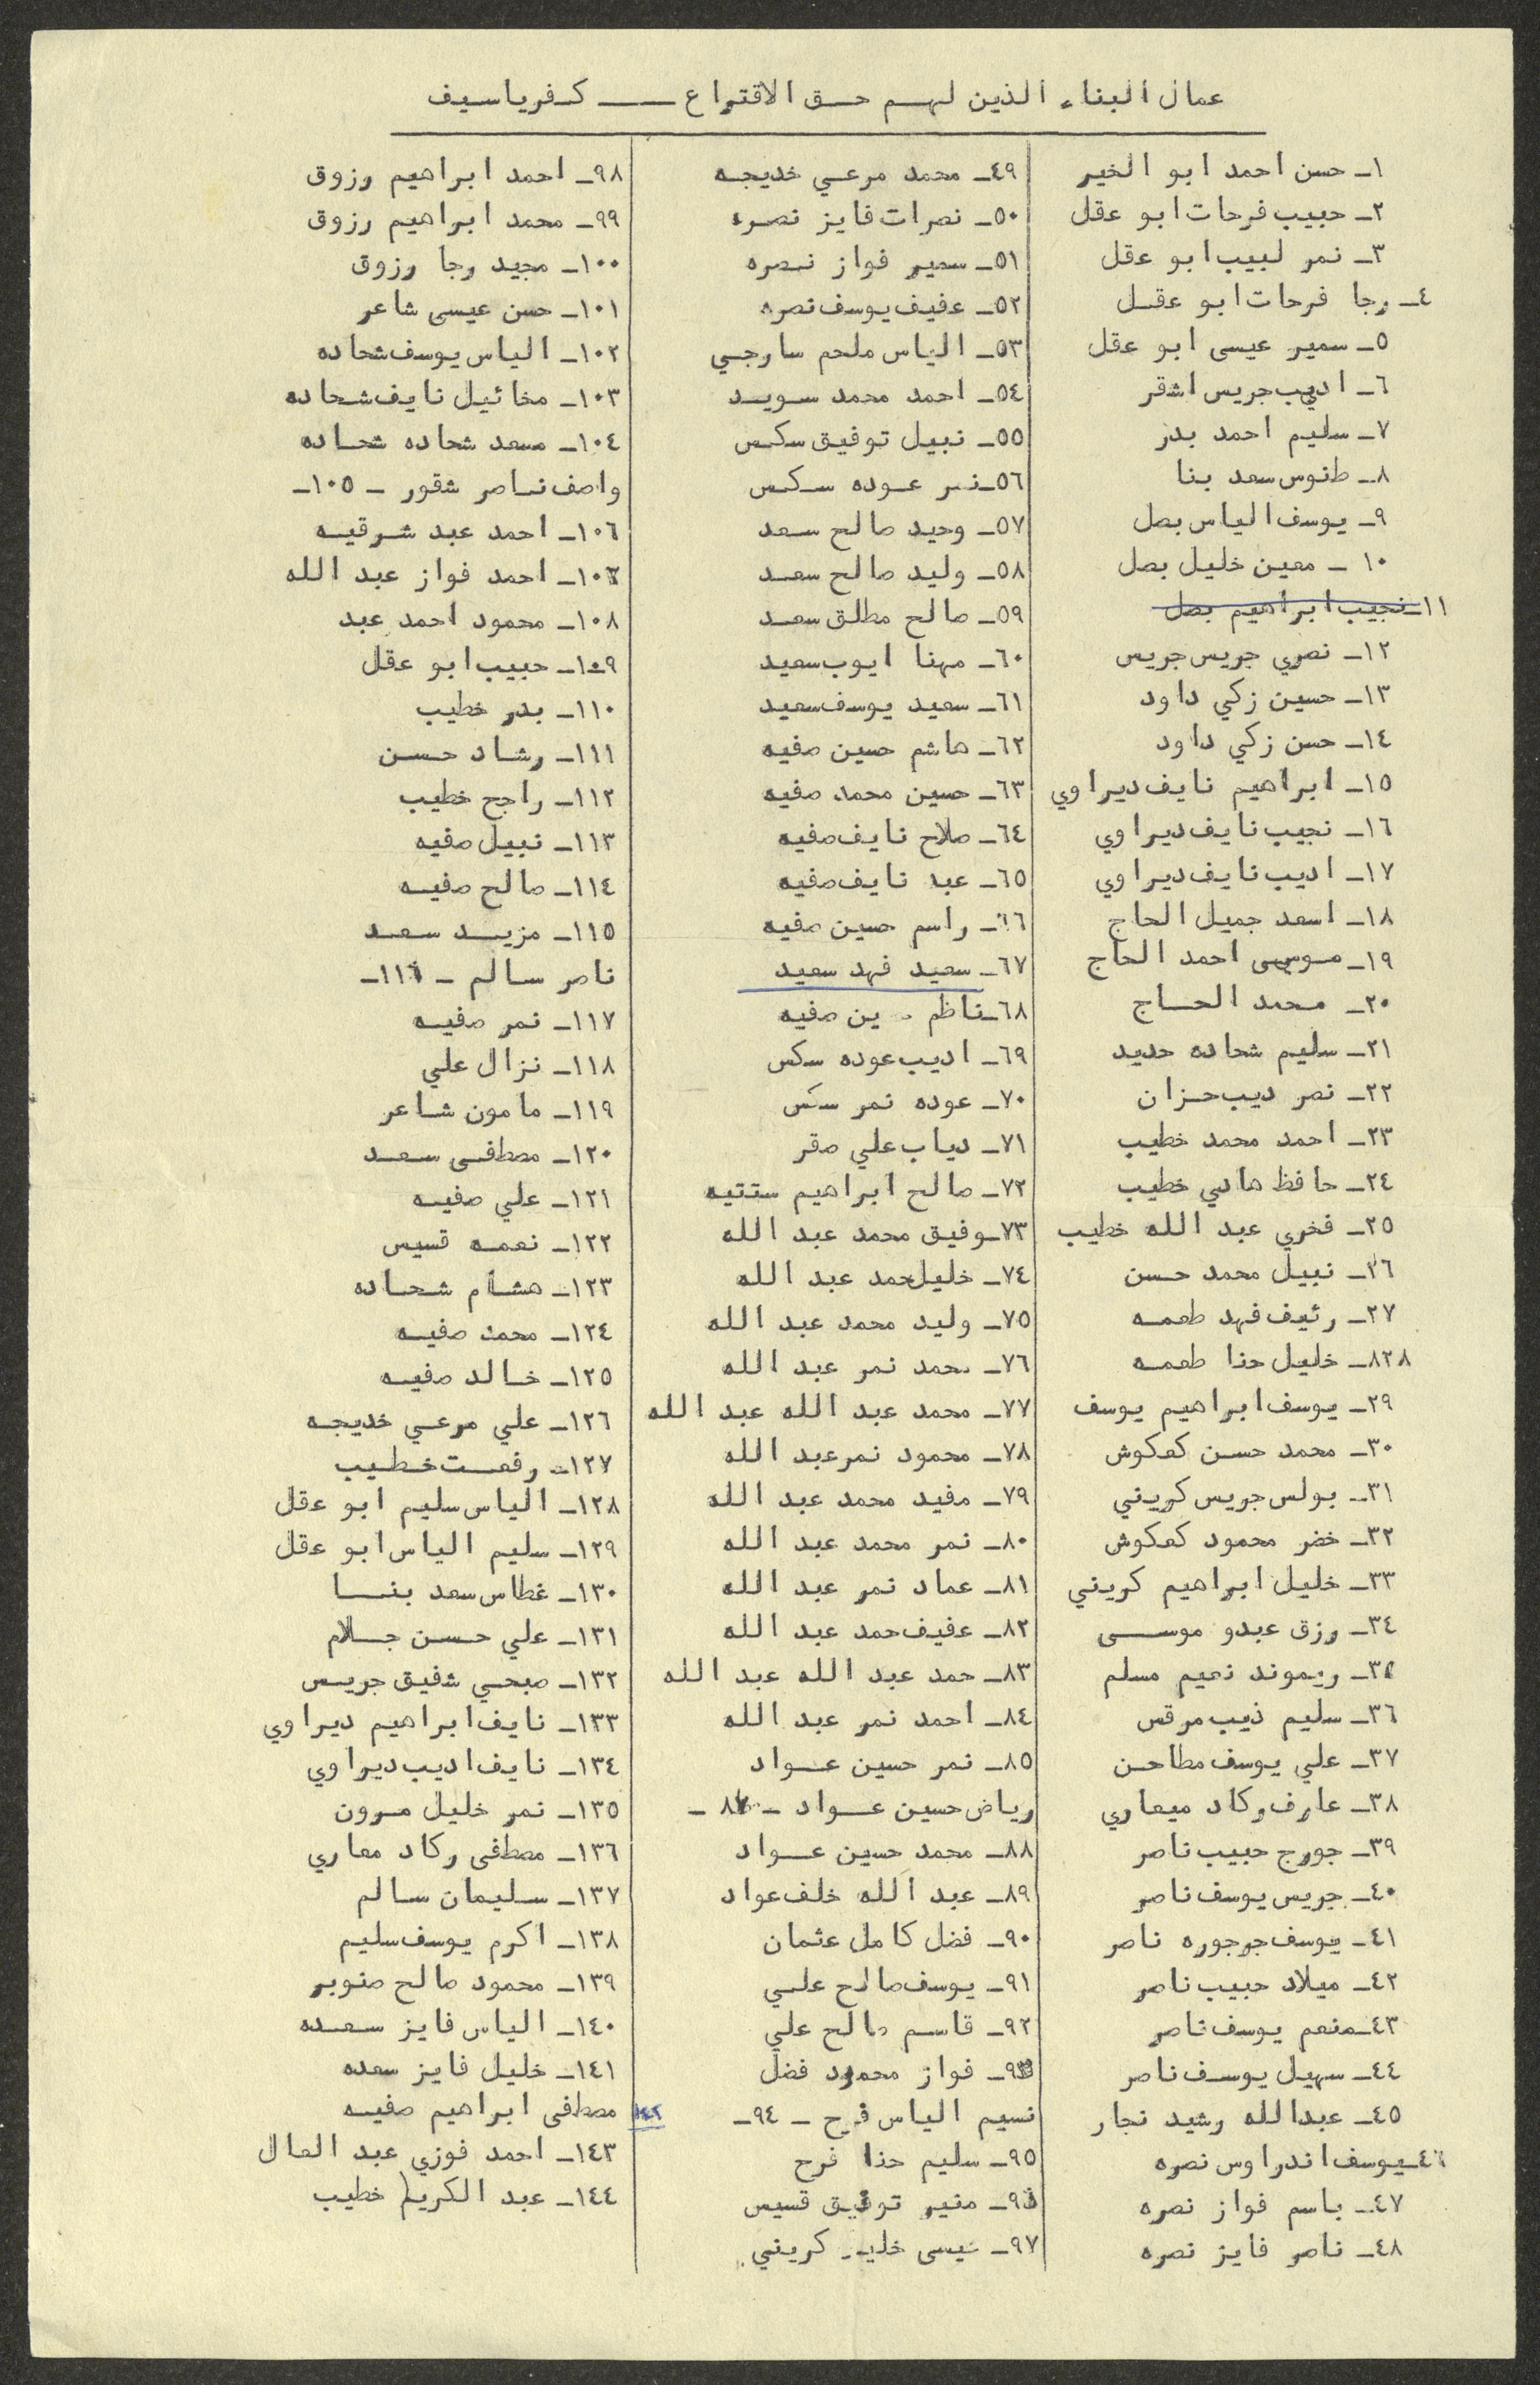 عمال البناء الذين لهم حق الاقتراع ــــ كفرياسيف
١ـ حسن احمد ابو الخير
٢ـ حبيب فرحات ابو عقل
٣ـ نمر لبيب ابو عقل
٤ـ رجا فرحات ابو عقل
٥ـ سمير عيسى ابو عقل
٦ـ اديب جريس اشقر
٧ـ سليم احمد بدر
٨ـ طنوس سعد بنا
٩ـ يوسف الياس بصل
١٠ ـ معين خليل بصل
١١ـ نجيب ابراهيم بصل
١٢ـ نصري جريس جريس
١٣ـ حسين زكي داود
١٤ـ حسن زكي داود
١٥ـ ابراهيم نايف ديراوي
١٦ـ نجيب نايف ديراوي
١٧ـ اديب نايف ديراوي
١٨ـ اسعد جميل الحاج
١٩ـ موسى احمد الحاج
٢٠ـ محمد الحاج
٢١ـ سليم شحاده حديد
٢٢ـ نصر ديب حزان
٢٣ـ احمد محمد خطيب
٢٤ـ حافظ هادي خطيب
٢٥ـ فخري عبد الله خطيب
٢٦ـ نبيل محمد حسن
٢٧ـ رئيف فهد طعمه
٨٢٨ـ خليل حنا طعمه
٢٩ـ يوسف ابراهيم يوسف
٣٠ـ محمد حسن كعكوش
٣١ـ بولس جريس كريني
٣٢ـ خضر محمود كعكوش
٣٣ـ خليل ابراهيم كريني
٣٤ـ رزق عبدو موسى
٣٥ـ ريموند نعيم مسلم
٣٦ـ سليم ذيب مرقس
٣٧ـ علي يوسف مطاحن
٣٨ـ عارف ركاد ميعاري
٣٩ـ جورج حبيب ناصر
٤٠ـ جريس يوسف ناصر
٤١ـ يوسف جرجوره ناصر
٤٢ـ ميلاد حبيب ناصر
٤٣ـ منعم يوسف ناصر
٤٤ـ سهيل يوسف ناصر
٤٥ـ عبدالله رشيد نجار
٤٦ـ يوسف اندراوس نصره
٤٧ـ باسم فواز نصره
٤٨ـ ناصر فايز نصره
٤٩ـ محمد مرعي خديجه
٥٠ـ نصرات فايز نصره
٥١ـ سمير فواز نصره
٥٢ـ عفيف يوسف نصره
٥٣ـ الياس ملحم سارجي
٥٤ـ احمد محمد سويد
٥٥ـ نبيل توفيق سكس
٥٦ـ نمر عوده سكس
٥٧ـ وحيد صالح سعد
٥٨ـ وليد صالح سعد
٥٩ـ صالح مطلق سعد
٦٠ـ مهنا ايوب سعيد
٦١ـ سعيد يوسف سعيد
٦٢ـ هاشم حسين صفيه
٦٣ـ حسين محمد صفيه
٦٤ـ صلاح نايف صفيه
٦٥ـ عبد نايف صفيه
٦٦ـ راسم حسين صفيه
٦٧ـ سعيد فهد سعيد
٦٨ـ ناظم ين صفيه
٦٩ـ اديب عوده سكس
٧٠ـ عوده نمر سكس
٧١ـ دياب علي صقر
٧٢ـ صالح ابراهيم ستتيه
٧٣ـ وفيق محمد عبد الله
٧٤ـ خليل حمد عبد الله
٧٥ـ وليد محمد عبد الله
٧٦ـ محمد نمر عبد الله
٧٧ـ محمد عبد الله عبد الله
٧٨ـ محمود نمر عبد الله
٧٩ـ مفيد محمد عبد الله
٨٠ـ نمر محمد عبد الله
٨١ـ عماد نمر عبد الله
٨٢ـ عفيف حمد عبد الله
٨٣ـ حمد عبد الله عبد الله
٨٤ـ احمد نمر عبد الله
٨٥ـ نمر حسين عواد
رياض حسين عواد ـ ٨٧ ـ
٨٨ـ محمد حسين عواد
٨٩ـ عبد الله خلف عواد
٩٠ـ فضل كامل عثمان
٩١ـ يوسف صالح علي
٩٢ـ قاسم صالح علي
٩٣ـ فواز محمود فضل
نسيم الياس فرح ـ ٩٤ـ
٩٥ـ سليم حنا فرح
٩٦ـ منير توفيق قسيس
٩٧ـ عيسى خليل كريني
٩٨ـ احمد ابراهيم رزوق
٩٩ـ محمد ابراهيم رزوق
١٠٠ـ مجيد رجا رزوق
١٠١ـ حسن عيسى شاعر
١٠٢ـ الياس يوسف شحاده
١٠٣ـ مخائيل نايف شحاده
١٠٤ـ مسعد شحاده شحاده
واصف ناصر شقور ـ ١٠٥ـ
١٠٦ـ احمد عبد شرقيه
١٠٧ـ احمد فواز عبد الله
١٠٨ـ محمود احمد عبد
١٠٩ـ حبيب ابو عقل
١١٠ـ بدر خطيب
١١١ـ رشاد حسن
١١٢ـ راجح خطيب
١١٣ـ نبيل صفيه
١١٤ـ صالح صفيه
١١٥ـ مزيد سعد
ناصر سالم ـ ١١٦ـ
١١٧ـ نمر صفيه
١١٨ـ نزال علي
١١٩ـ مامون شاعر
١٢٠ـ مصطفى سعد
١٢١ـ علي صفيه
١٢٢ـ نعمه قسيس
١٢٣ـ هشام شحاده
١٢٤ـ محمد صفيه
١٢٥ـ خالد صفيه
١٢٦ـ علي مرعي خديجه
١٢٧ـ رفعت خطيب
١٢٨ـ الياس سليم ابو عقل
١٢٩ـ سليم الياس ابو عقل
١٣٠ـ غطاس سعد بنا
١٣١ـ علي حسن جلام
١٣٢ـ صبحي شفيق جريس
١٣٣ـ نايف ابراهيم ديراوي
١٣٤ـ نايف اديب ديراوي
١٣٥ـ نمر خليل مرون
١٣٦ـ مصطفى ركاد معاري
١٣٧ـ سليمان سالم
١٣٨ـ اكرم يوسف سليم
١٣٩ـ محمود صالح صنوبر
١٤٠ـ الياس فايز سعده
١٤١ـ خليل فايز سعده
١٤٢ مصطفى ابراهيم صفيه
١٤٣ـ احمد فوزي عبد العال
١٤٤ـ عبد الكريم خطيب